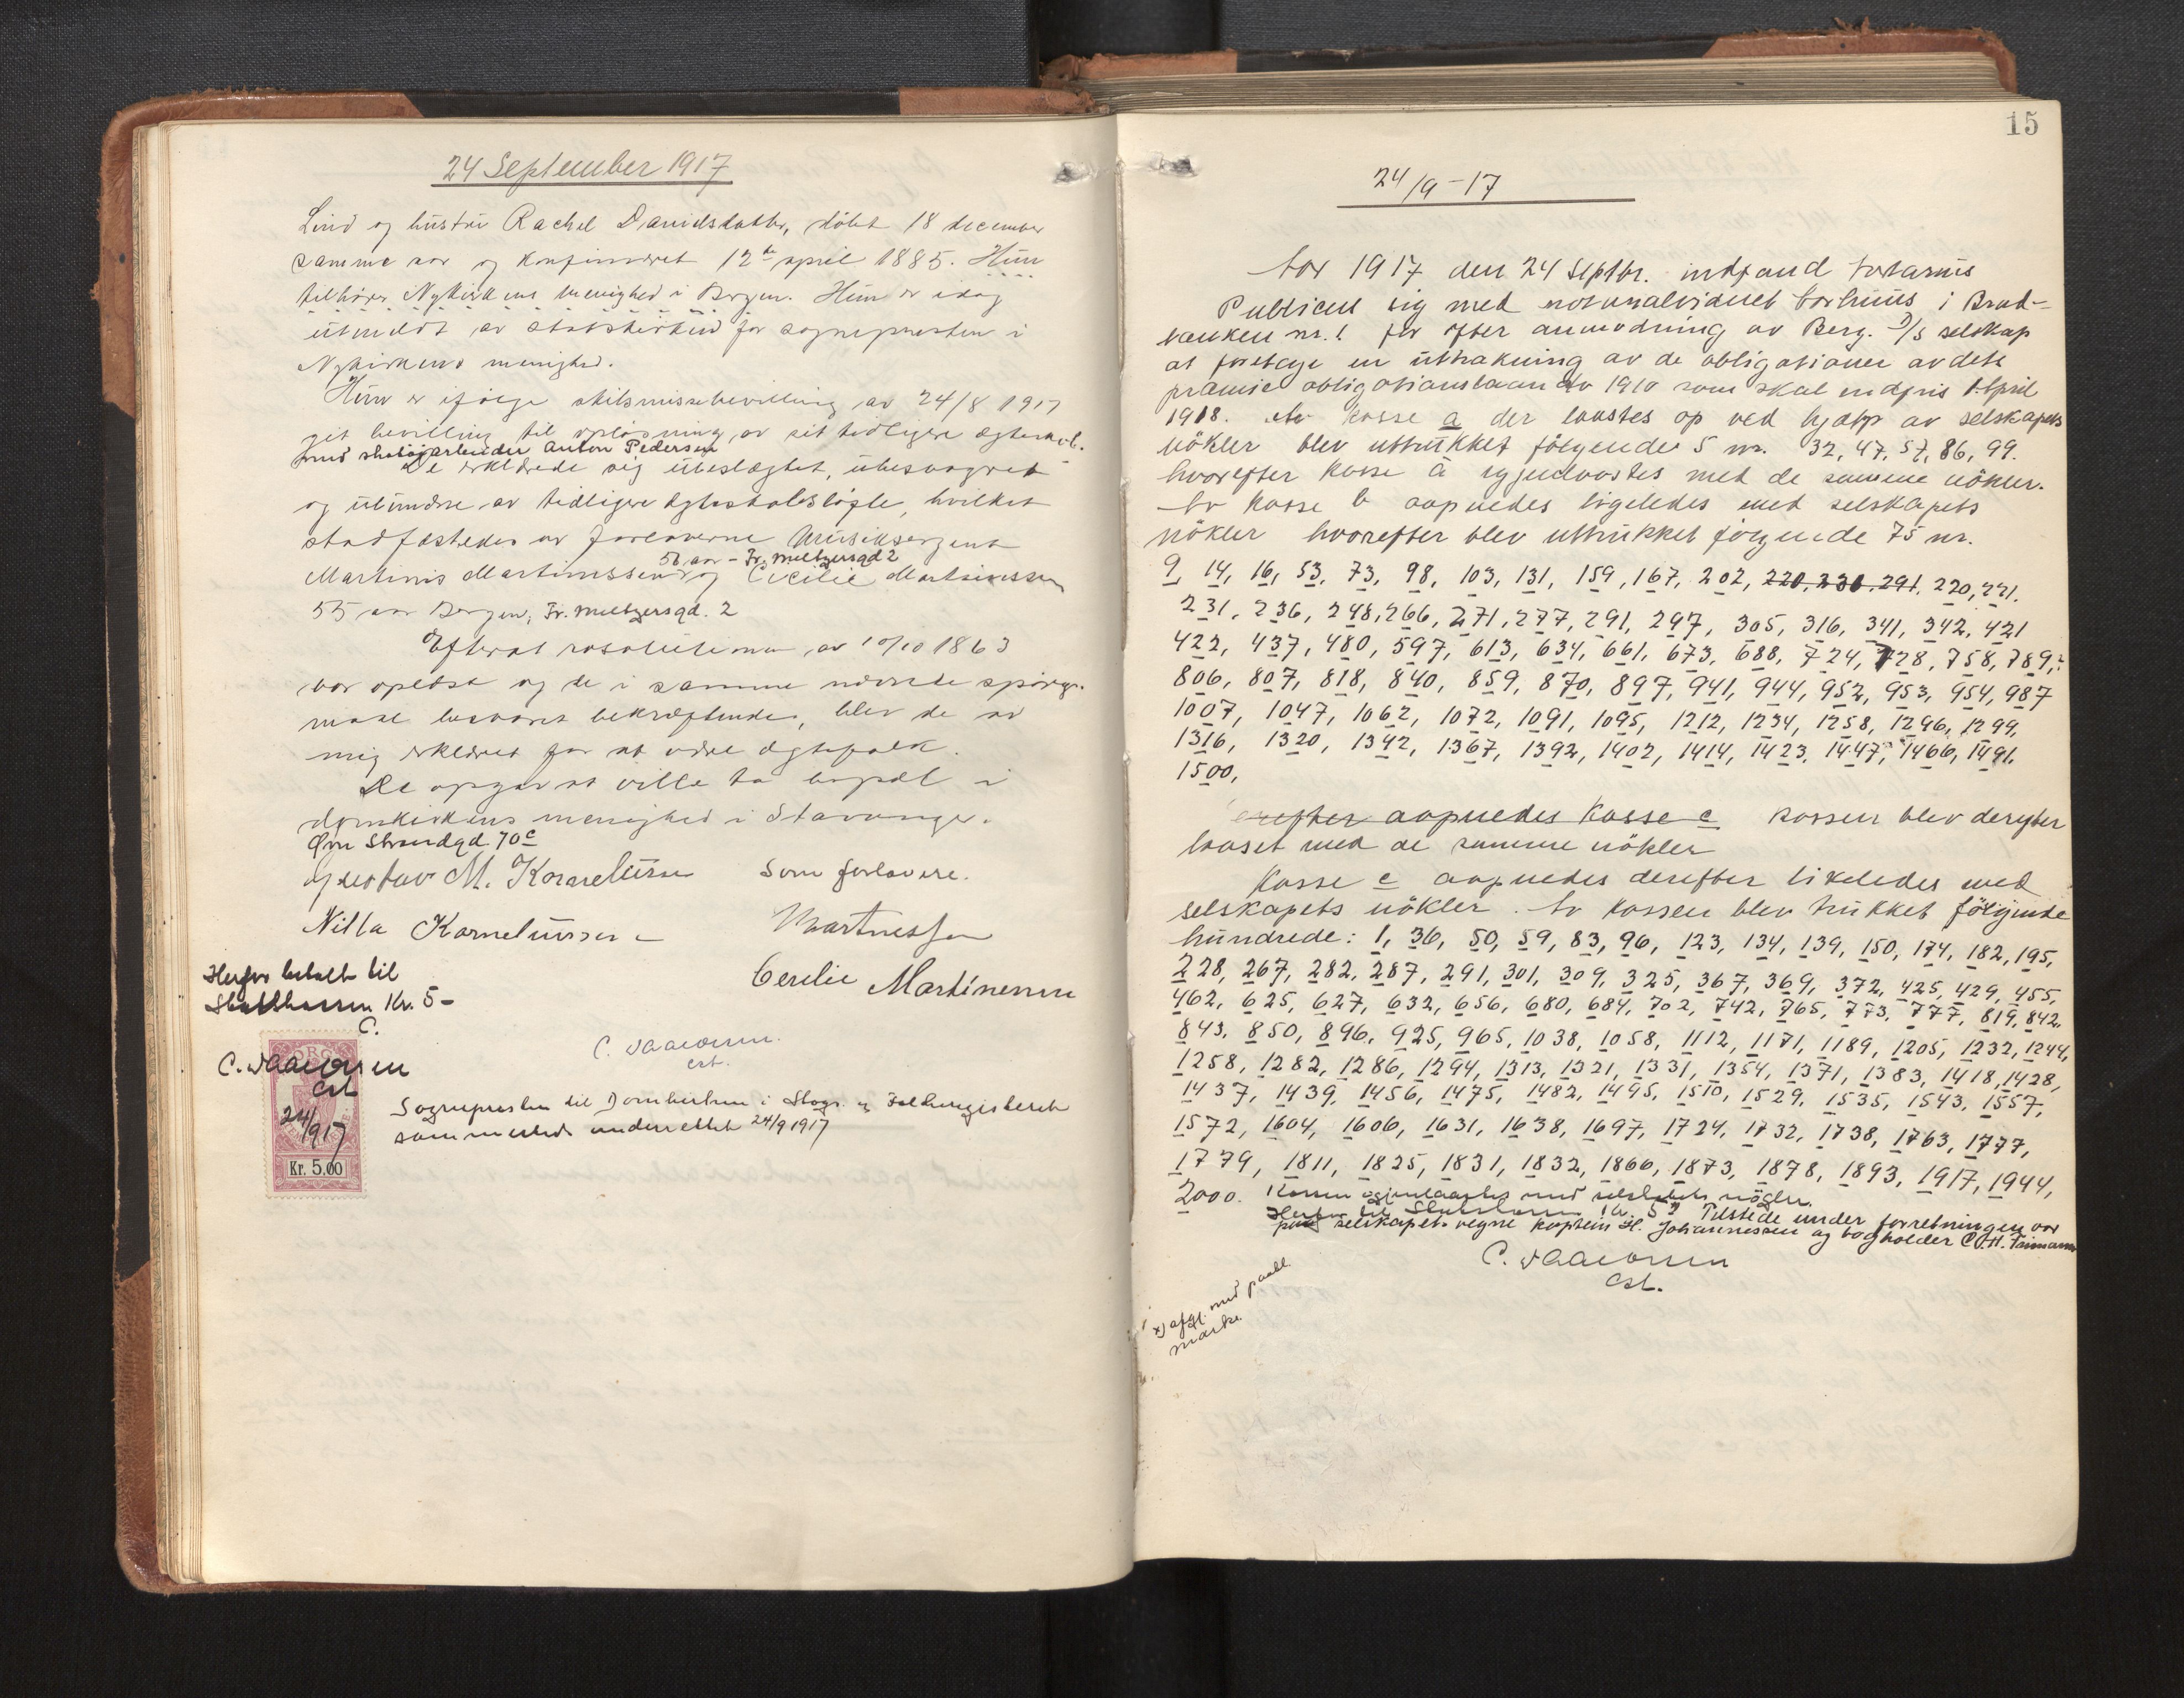 24 September 1917
Lind og hustru Rachel Davidsdatter, döbt 18 december
samme aar og konfirmeret 12te april 1885. Hun
tilhörer Nykirkens menighed i Bergen. Hun er idag
utmeldt av statskirken for sognepresten i
Nykirkens menighed.
Hun er ifölge skilsmissebevilling av 24/8 1917
git bevilling til oplösning av sit tidligere egteskab
med skotöiarbeider Anton Pedersen
De erklærede sig ubeslegtet, ubesvogret
og ubundne av tidligere egteskabslöfte, hvilket
stadfæstedes av forloverne Musiksergent
56 aar - Fr. Meltzersgd 2
Martinius Martinussen og Cecilie Martinussen
55 aar Bergen, Fr. Meltzersgd. 2
Efterat resolutionen av 10/10 1863
var oplæst og de i samme nævnte spörgs-
maal besvaret bekræftende, blev de av
mig erklæret for at være egtefolk.
De opgav at ville ta bopæl i
domkirkens menighed i Stavanger.
Övre Strandgd. 70c
Gustav M. Kornelíussen Som forlovere.
Nilla Korneliussen Martinussen
Herfor betalt til
Statskassen Kr. 5 -
C.
Cecilie Martinussen
C.
cst.
C.
cst
24/9 17
Kr. 5.00
Sognepresten til Domkirken i Stvgr. og Folkeregisteret
sammesteds underrettet 24/9 1917
15
24/9 - 17
Aar 1917 den 24 Septbr. indfand Notarius
Publicus sig med notarialvidnet i Brad-
bænken nr. 1 for efter anmodning av Berg. D/S selskap
at foretage en uttrækning av de obligationer av dets
præmieobligationslaan av 1910 som skal indfris 1 April
1918. Av kasse a der laastes op ved hjælp av selskapets
nökler blev uttrukket fölgende 5 nr. 32, 47, 57, 86, 99.
hvorefter kasse a igjenlaastes med de samme nökler.
Av kasse b aapnedes ligeledes med selskapets
nökler hvorefter blev uttrukket fölgende 75 nr.
9, 14, 16, 53, 73, 98, 103, 131, 159, 167, 202, 220, 236, 291, 220, 221.
231, 236, 248, 266, 271, 277, 291, 297, 305, 316, 341, 342, 421
422, 437, 480, 597, 613, 634, 661, 673, 688, 724, 728, 758, 789,
806, 807, 818, 840, 859, 870, 897, 941, 944, 952, 953, 954, 987
1007, 1047, 1062, 1072, 1091, 1095, 1212, 1234, 1258, 1296, 1299,
1316, 1320, 1342, 1367, 1392, 1402, 1414, 1423, 1447, 1466, 1491,
1500,
erefter aapnedes kasse c kassen blev derefter
laaset med de samme nökler
Kasse c aapnedes derefter likeledes med
selskapets nökler. Av kassen blev trukket fölgende
hundrede: 1, 36, 50, 59, 83, 96, 123, 134, 139, 150, 174, 182, 195,
228, 267, 282, 287, 291, 301, 309, 325, 367, 369, 372, 425, 429, 455,
462, 625, 627, 632, 656, 680, 684, 702, 742, 765, 773, 777, 819, 842,
843, 850, 896, 925, 965, 1038, 1058, 1112, 1171, 1189, 1205, 1232, 1244,
1258, 1282, 1286, 1294, 1313, 1321, 1331, 1354, 1371, 1383, 1418, 1428,
1437, 1439, 1456, 1475, 1482, 1495, 1510, 1529, 1535, 1543, 1557,
1572, 1604, 1606, 1631, 1638, 1697, 1724, 1732, 1738, 1763, 1777,
1779, 1811, 1825, 1831, 1832, 1866, 1873, 1878, 1893, 1917, 1944,
2000. Kassen igjenlaastes med selskabets nögler.
Herfor til Statskassen Kr. 5 Tilstede under forretningen var
paa selskapets vegne kaptein H. Johannessen og bogholder C. H.
C.
cst.
x) afgift med paakl.
marke